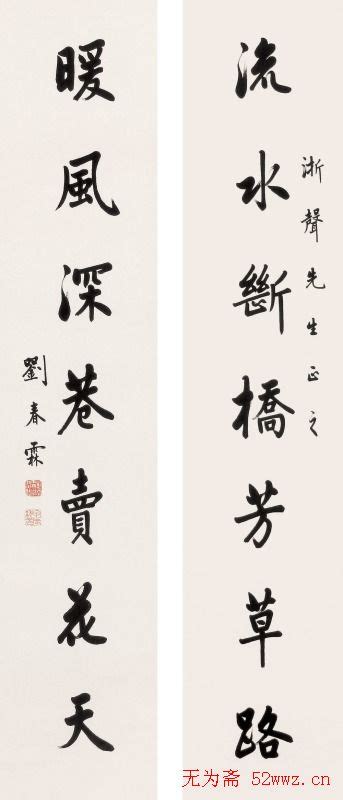 流水斷橋芳草路
淅聲先生正之
暖風深巷賣花天
劉春霖
无为斋 52wwz.cn